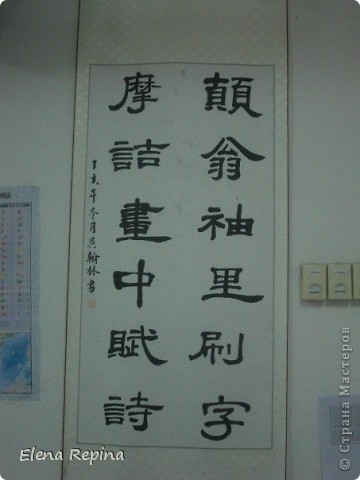 顛翁袖里刷字
摩詰畫中賦詩
丁亥年冬月吳翰林書
Elena Repina
© Страна Мастеров